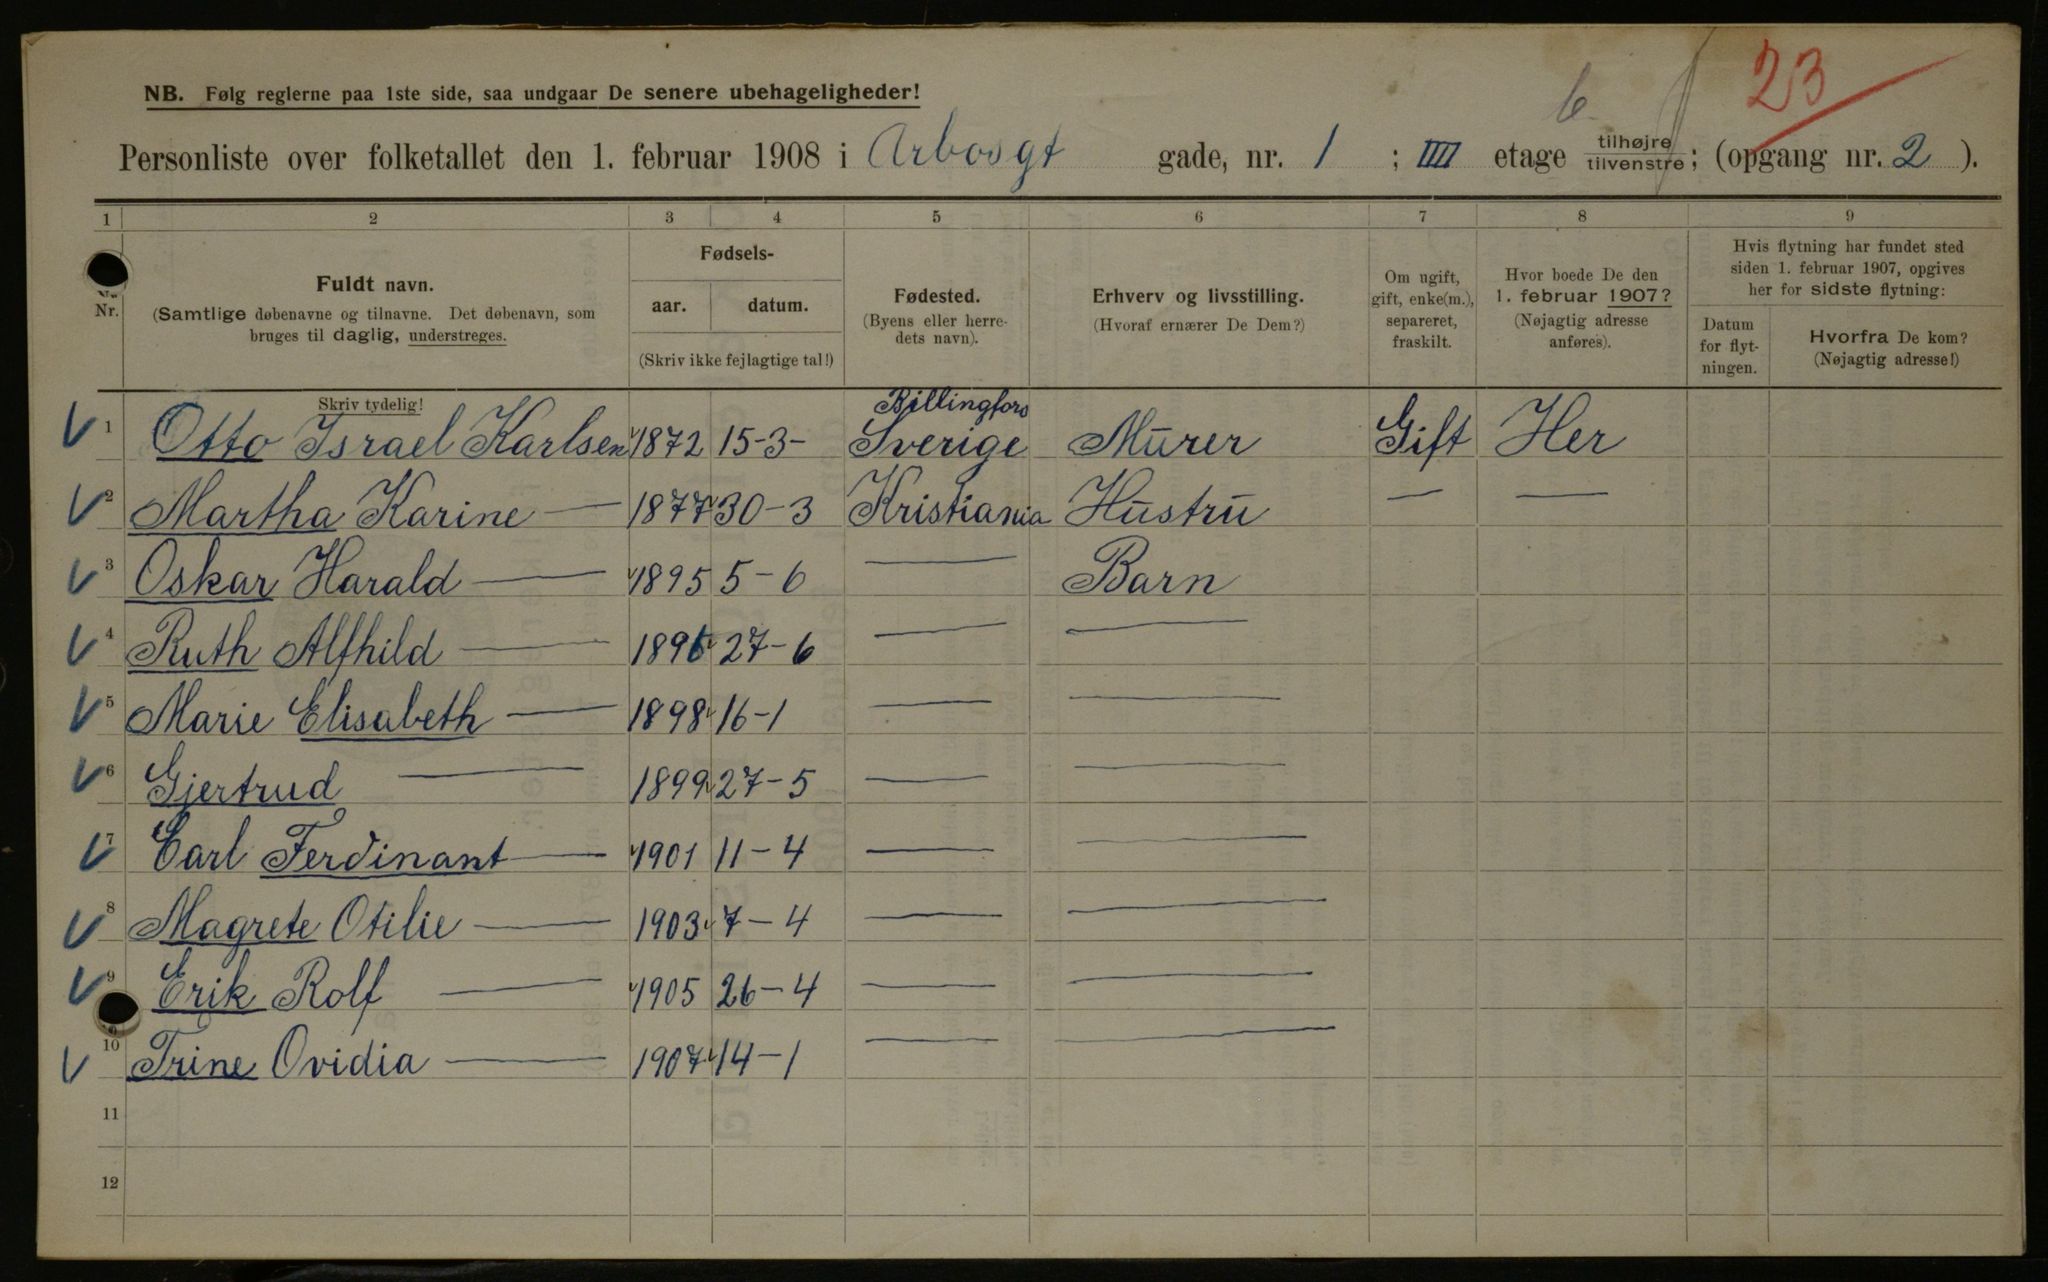 23
b.
NB. Følg reglerne paa 1ste side, saa undgaar De senere ubehageligheder!
Personliste over folketallet den 1. februar 1908 i Arbosgt gade, nr. 1 ; IIII etage tilhøjre/tilvenstre; (opgang nr. 2 ).
1 2 3 4 5 6 7 8 9
Nr.
Fuldt navn.
(Samtlige døbenavne og tilnavne. Det døbenavn, som
bruges til daglig, understreges.
Skriv tydelig!
Fødsels-
aar. datum.
(Skriv ikke fejlagtige tal!)
Fødested.
(Byens eller herre-
dets navn).
Erhverv og livsstilling.
(Hvoraf ernærer De Dem?)
Om ugift,
gift, enke(m.),
separeret,
fraskilt.
Hvor boede De den
1. februar 1907?
(Nøjagtig adresse
anføres).
Hvis flytning har fundet sted
siden 1. februar 1907, opgives
her for sidste flytning:
Datum
for flyt-
ningen.
Hvorfra De kom?
(Nøjagtig adresse!)
Billingfors
1 Otto Israel Karlsen 1872 15-3- Sverige Murer Gift Her
2 Martha Karine — 1877 30-3 Kristiania Hustru — —
3 Oskar Harald — 1895 5-6 — Barn
4 Ruth Alfhild — 1896 27-6 — —
5 Marie Elisabeth — 1898 16-1 — —
6 Gjertrud — 1899 27-5 — —
7 Carl Ferdinant — 1901 11-4 — —
8 Magrete Otilie — 1903 7-4 — —
9 Erik Rolf — 1905 26-4 — —
10 Trine Ovidia — 1907 14-1 — —
11
12